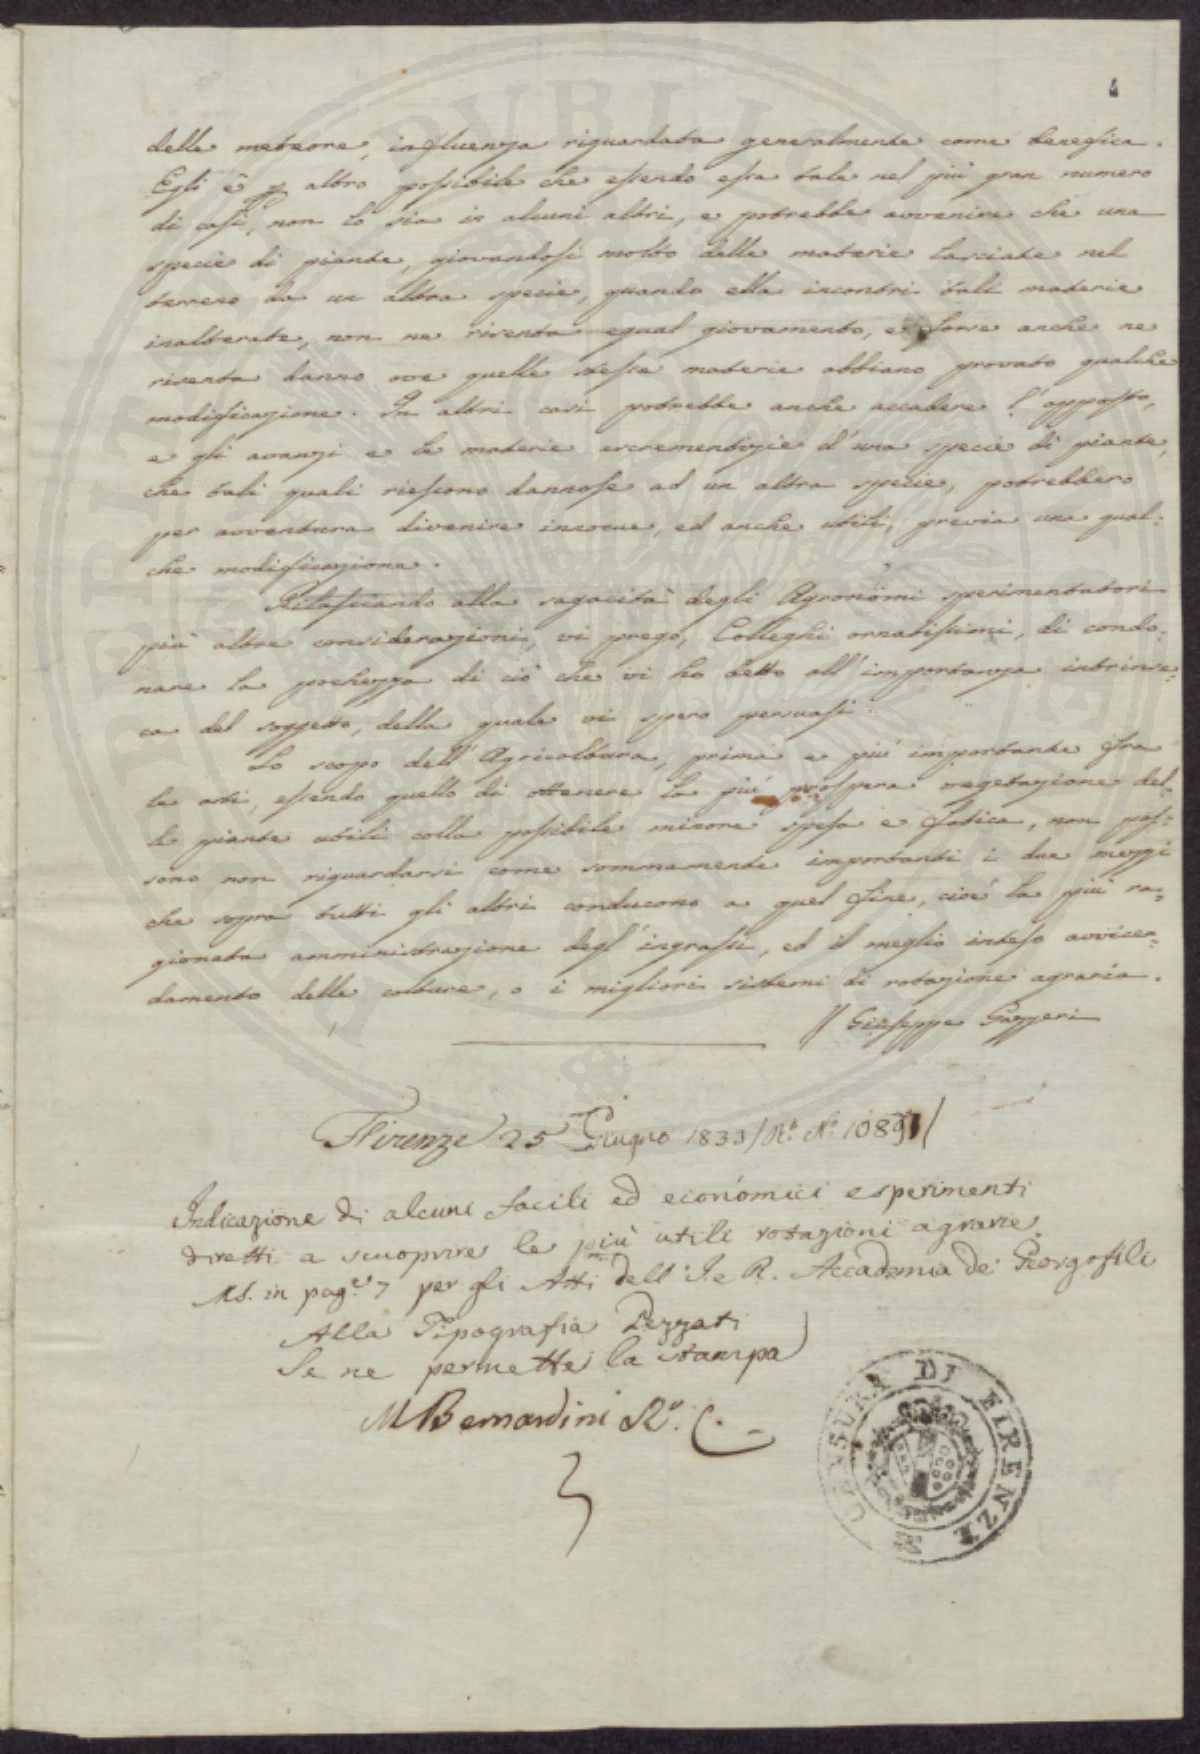 4
delle meteore, influenza riguardata generalmente come benefica.
Egli è p altro possibile che essendo essa tale nel più gran numero
di casi, non lo sia in alcuni altri, e potrebbe avvenire che una
specie di piante, giovandosi molto delle materie lasciate nel
terreno da un altra specie, quando ella incontri tali materie
inalterate, non ne risenta egual giovamento, e forse anche ne
risenta danno ove quelle stesse materie abbiano provato qualche
modificazione. In altri casi potrebbe anche accadere l'opposto,
e gli avanzi e le materie escrementizie d'una specie di piante,
che tali quali riescono dannose ad un altra specie, potrebbero
per avventura divenire innocue, ed anche utili, previa una qual-
che modificazione.
Rilasciando alla sagacità degli Agronomi sperimentatori
più altre considerazioni, vi prego, Colleghi ornatissimi, di condo-
nare la pochezza di ciò che vi ho detto all'importanza intrinse-
ca del soggetto, della quale vi spero persuasi.
Lo scopo dell'Agricoltura, prima e più importante fra
le arti, essendo quello di ottenere la più prospera vegetazione del-
le piante utili colla possibile minore spesa e fatica, non pos-
sono non riguardarsi come sommamente importanti i due mezzi
che sopra tutti gli altri conducono a quel fine, cioè la più ra-
gionata amministrazione degl'ingrassi, ed il meglio inteso avvicen-
damento delle colture, o i migliori sistemi di rotazione agraria.
Giuseppe Gazzeri
Firenze 25 Giugno 1833 / R.o N.o 1089 /
Indicazione di alcuni facili ed economici esperimenti
diretti a scuoprire le più utili rotazioni agrarie
MS. in pag.e 7 per gli Atti dell'I. e R. Accademia de' Georgofili
Alla Tipografia Pezzati
Se ne permette la stampa
M Bernardini R.o C.
CENSURA DI FIRENZE